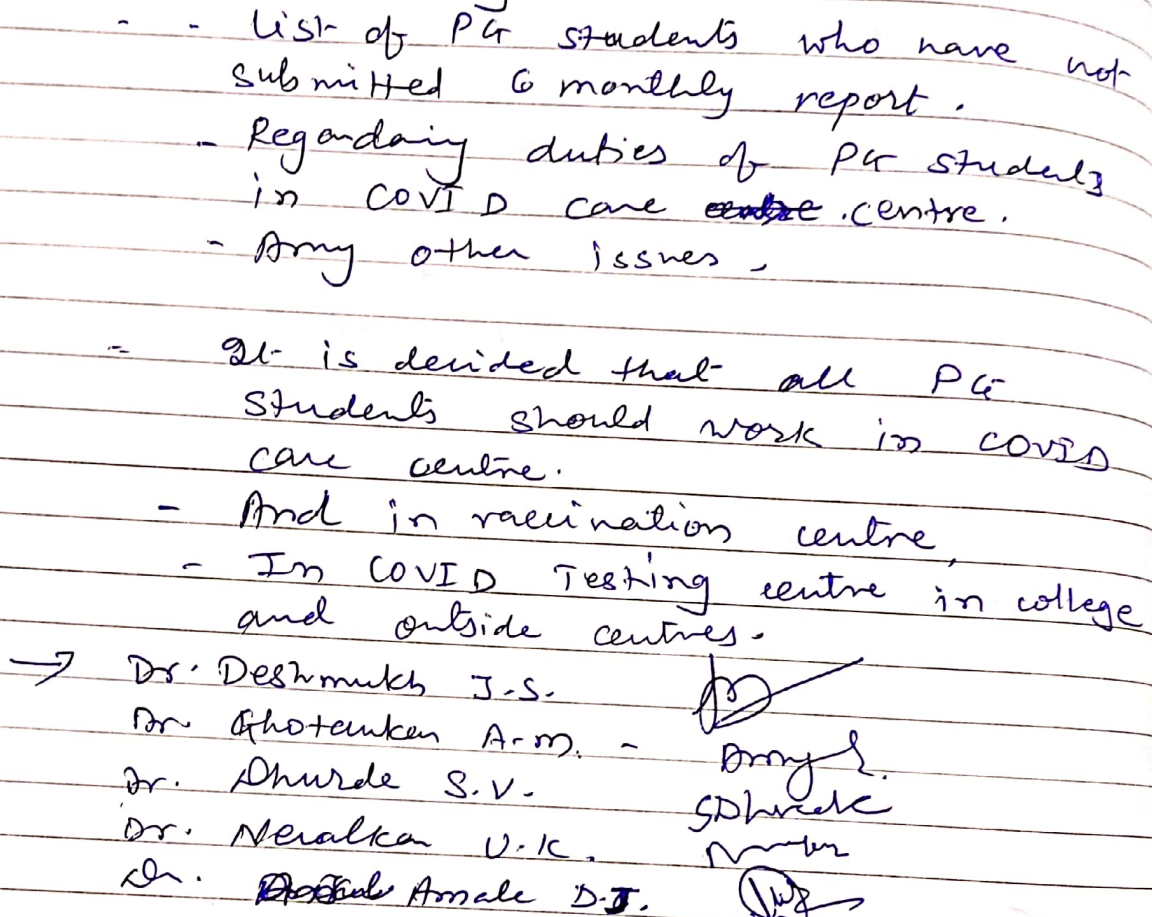 - - List of PG students who have not
submitted 6 monthly report.
- Regardaing duties of PG students
in COVID care centre.
- Any other issues,
- It is decided that all PG
students should work in COVID
care centre.
- And in vaccination centre,
- In COVID Testing centre in college
and outside centres.
→ Dr. Deshmukh J.S.
Dr. Ghotankar A.M. -
Dr. Dhurde S.V. SDhurde
Dr. Neralkar U.K.
Dr. Amale D.J.